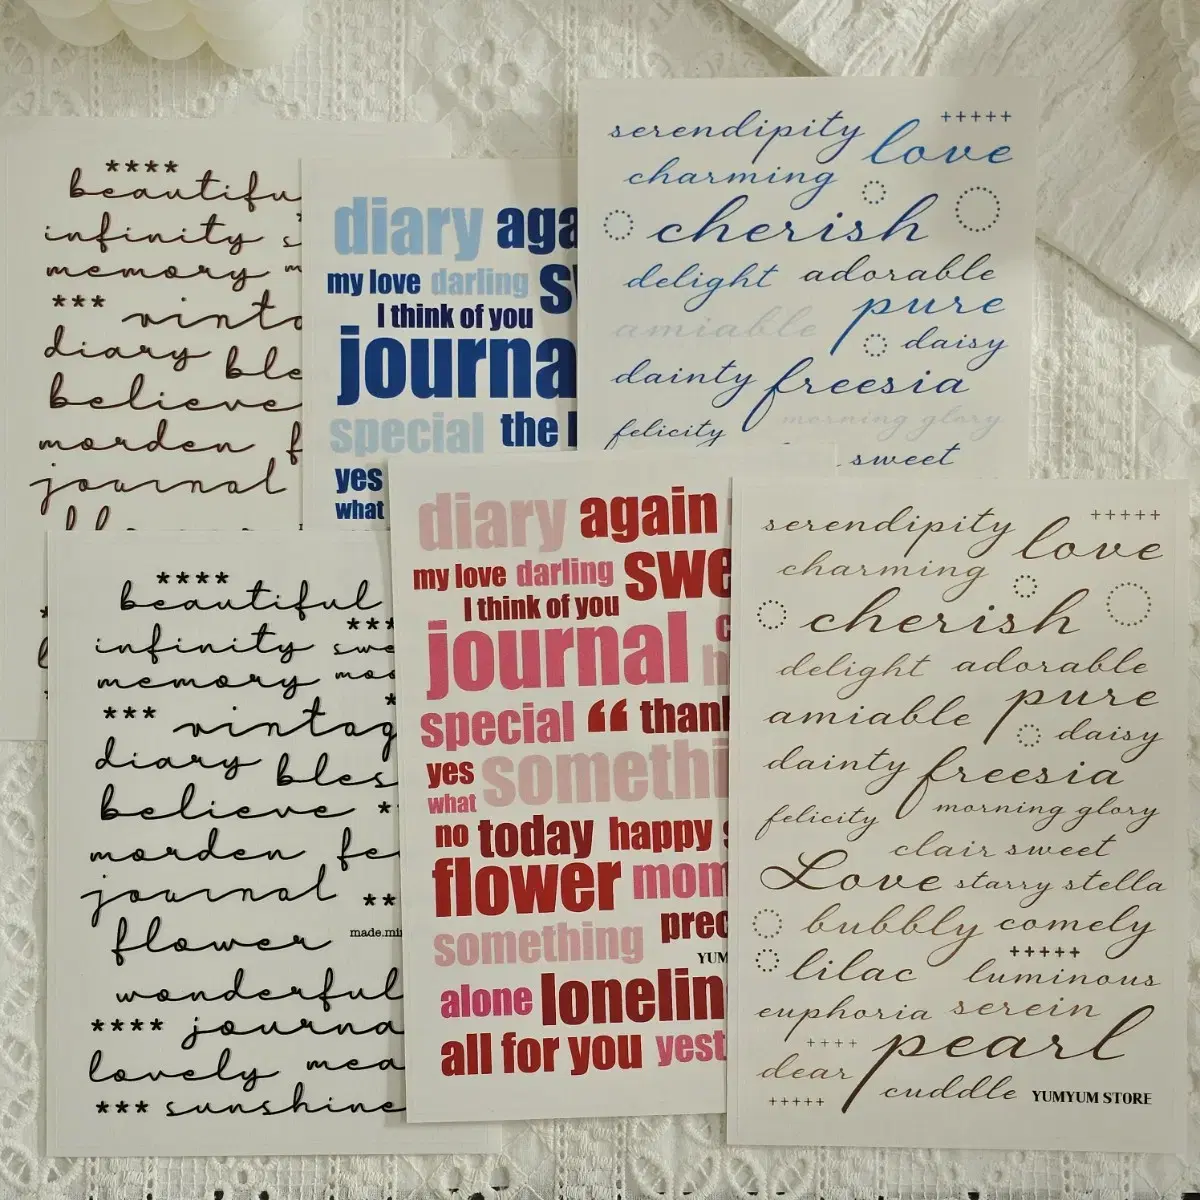 ****
beautiful
infinity
memory
***
vintag
diary
bles
believe
morden
journal
diary again
my love darling
I think of you
journal
special the
yes
what
serendipity
+++++
love
charming
cherish
delight adorable
pure
amiable
daisy
dainty freesia
morning glory
felicity
sweet
****
beautiful
***
infinity swe
memory mos
***
vintag
diary bles
believe
morden
journal
**
flower
made.mi
wonderful
**** journa
lovely mea
*** sunshine
diary again
my love darling swe
I think of you
journal
special “ thank
yes somethi
what
no today happy
flower mom
something prec
YUM
alone lonelin
all for you yest
serendipity
+++++
love
charming
cherish
delight adorable
pure
amiable
daisy
dainty freesia
morning glory
felicity
clair sweet
Love starry stella
bubbly comely
+++++
lilac luminous
euphoria serein
++++
pearl
dear
cuddle YUMYUM STORE
+++++